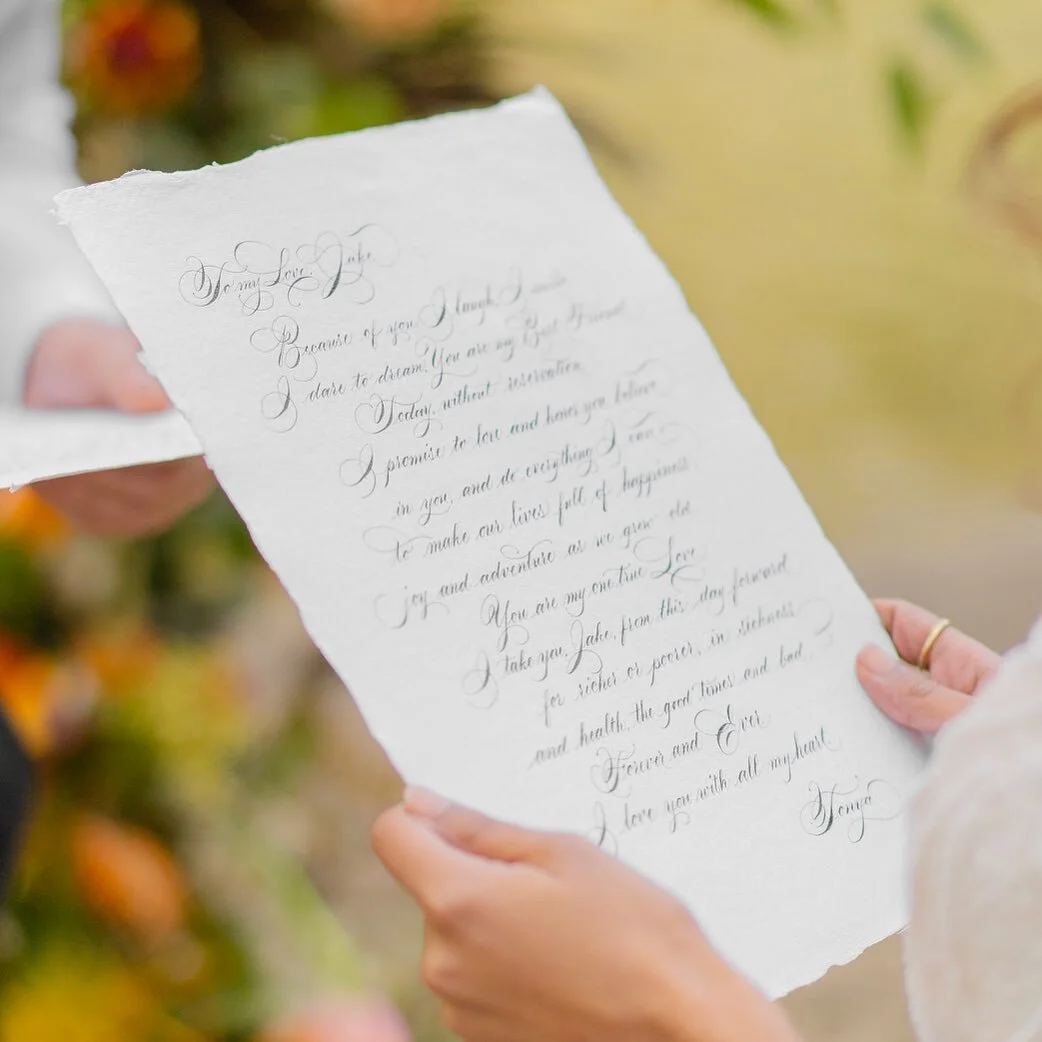 To my Love, Jake
Because of you, I laugh, I smile
I dare to dream. You are my Best Friend
Today, without reservation,
I promise to love and honor you, believe
in you, and do everything I can
to make our lives full of happiness
joy and adventure as we grow old
You are my one true Love
I take you, Jake, from this day forward
for richer or poorer, in sickness
and health, the good times and bad
Forever and Ever
I love you with all my heart
Tonya